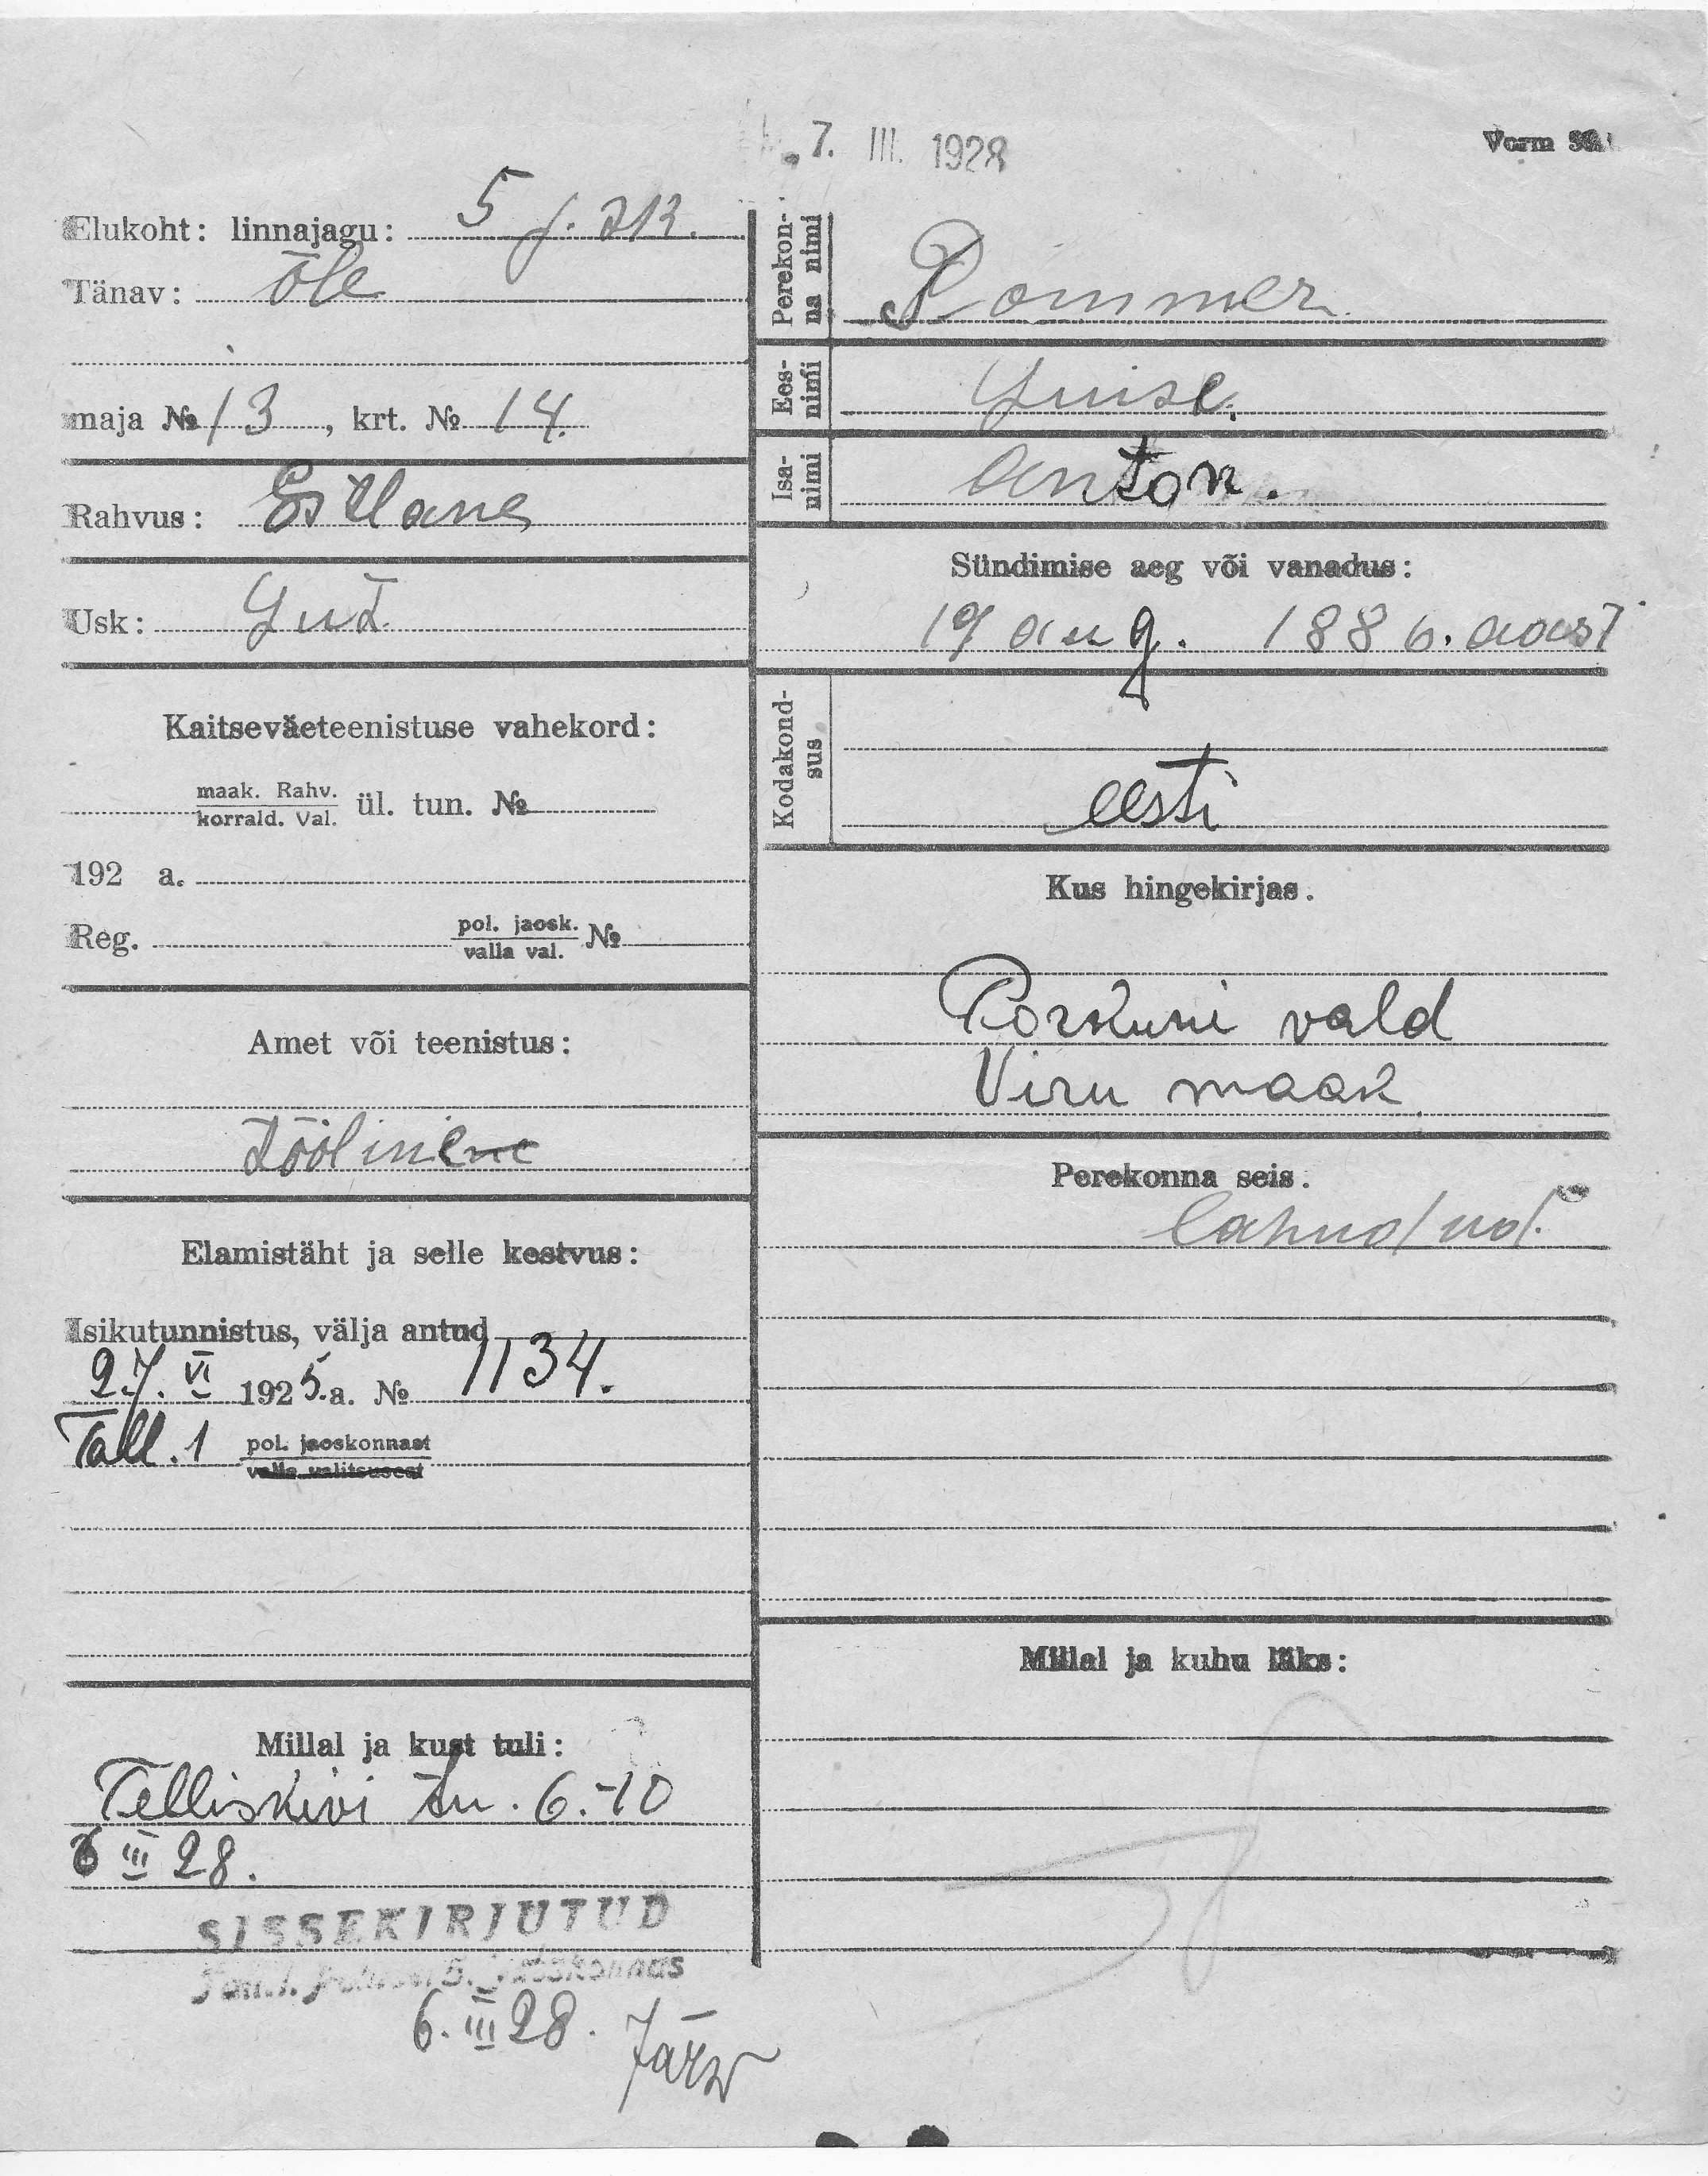 7. III. 1928
Vorm
Elukoht: linnajagu: 5 j. sk.
Tänav: Õle
maja № 13, krt. № 14.
Rahvus: Estlane
Usk: Lut.
Kaitseväeteenistuse vahekord:
maak. Rahv.
korrald. Val. ül. tun. №
192 a.
Reg. pol. jaosk.
valla val. №
Amet või teenistus:
tööline
Elamistäht ja selle kestvus:
Isikutunnistus, välja antud
27. VI 1925. a. № 1134.
Tall. 1 pol. jaoskonnast
valla valitsusest
Millal ja kust tuli:
Telliskivi tn. 6.-10
6 III 28.
SISSEKIRJUTUD
jaoskonnas
6. III 28. Järv
Perekonna nimi
Pommer
Eesnimi
Luise.
Isanimi
Anton.
Sündimise aeg või vanadus:
19 aug. 1886. aast
Kodakondsus
eesti
Kus hingekirjas.
Porkuni vald
Viru maak.
Perekonna seis.
Millal ja kuhu läks: